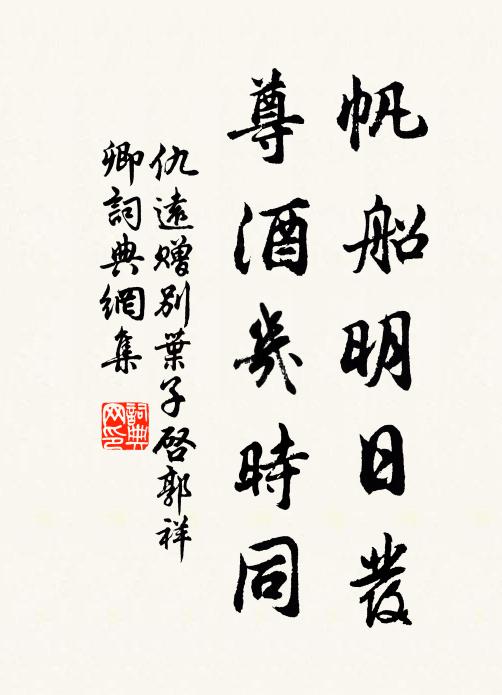 帆船明日發
尊酒幾時同
仇遠贈別葉子啓郭祥
卿詞典網集
詞典
网印